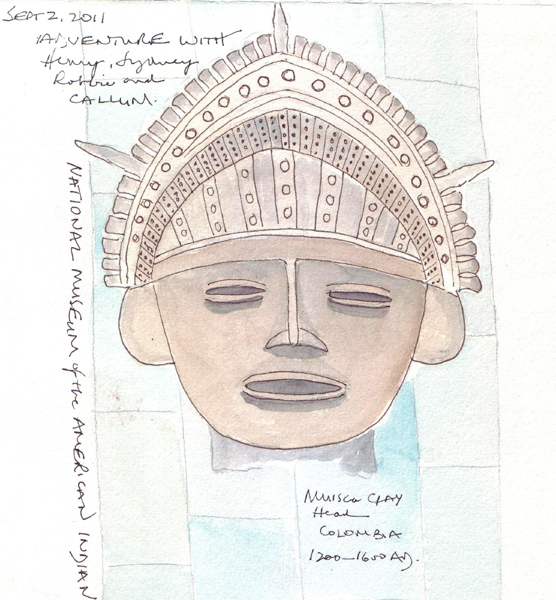 SEPT 2, 2011
ADVENTURE WITH
Henry, Sydney
Robbie and
CALLUM.
NATIONAL MUSEUM of the AMERICAN INDIAN
Muisca CLAY
Head
COLOMBIA
1200-1600 AD.